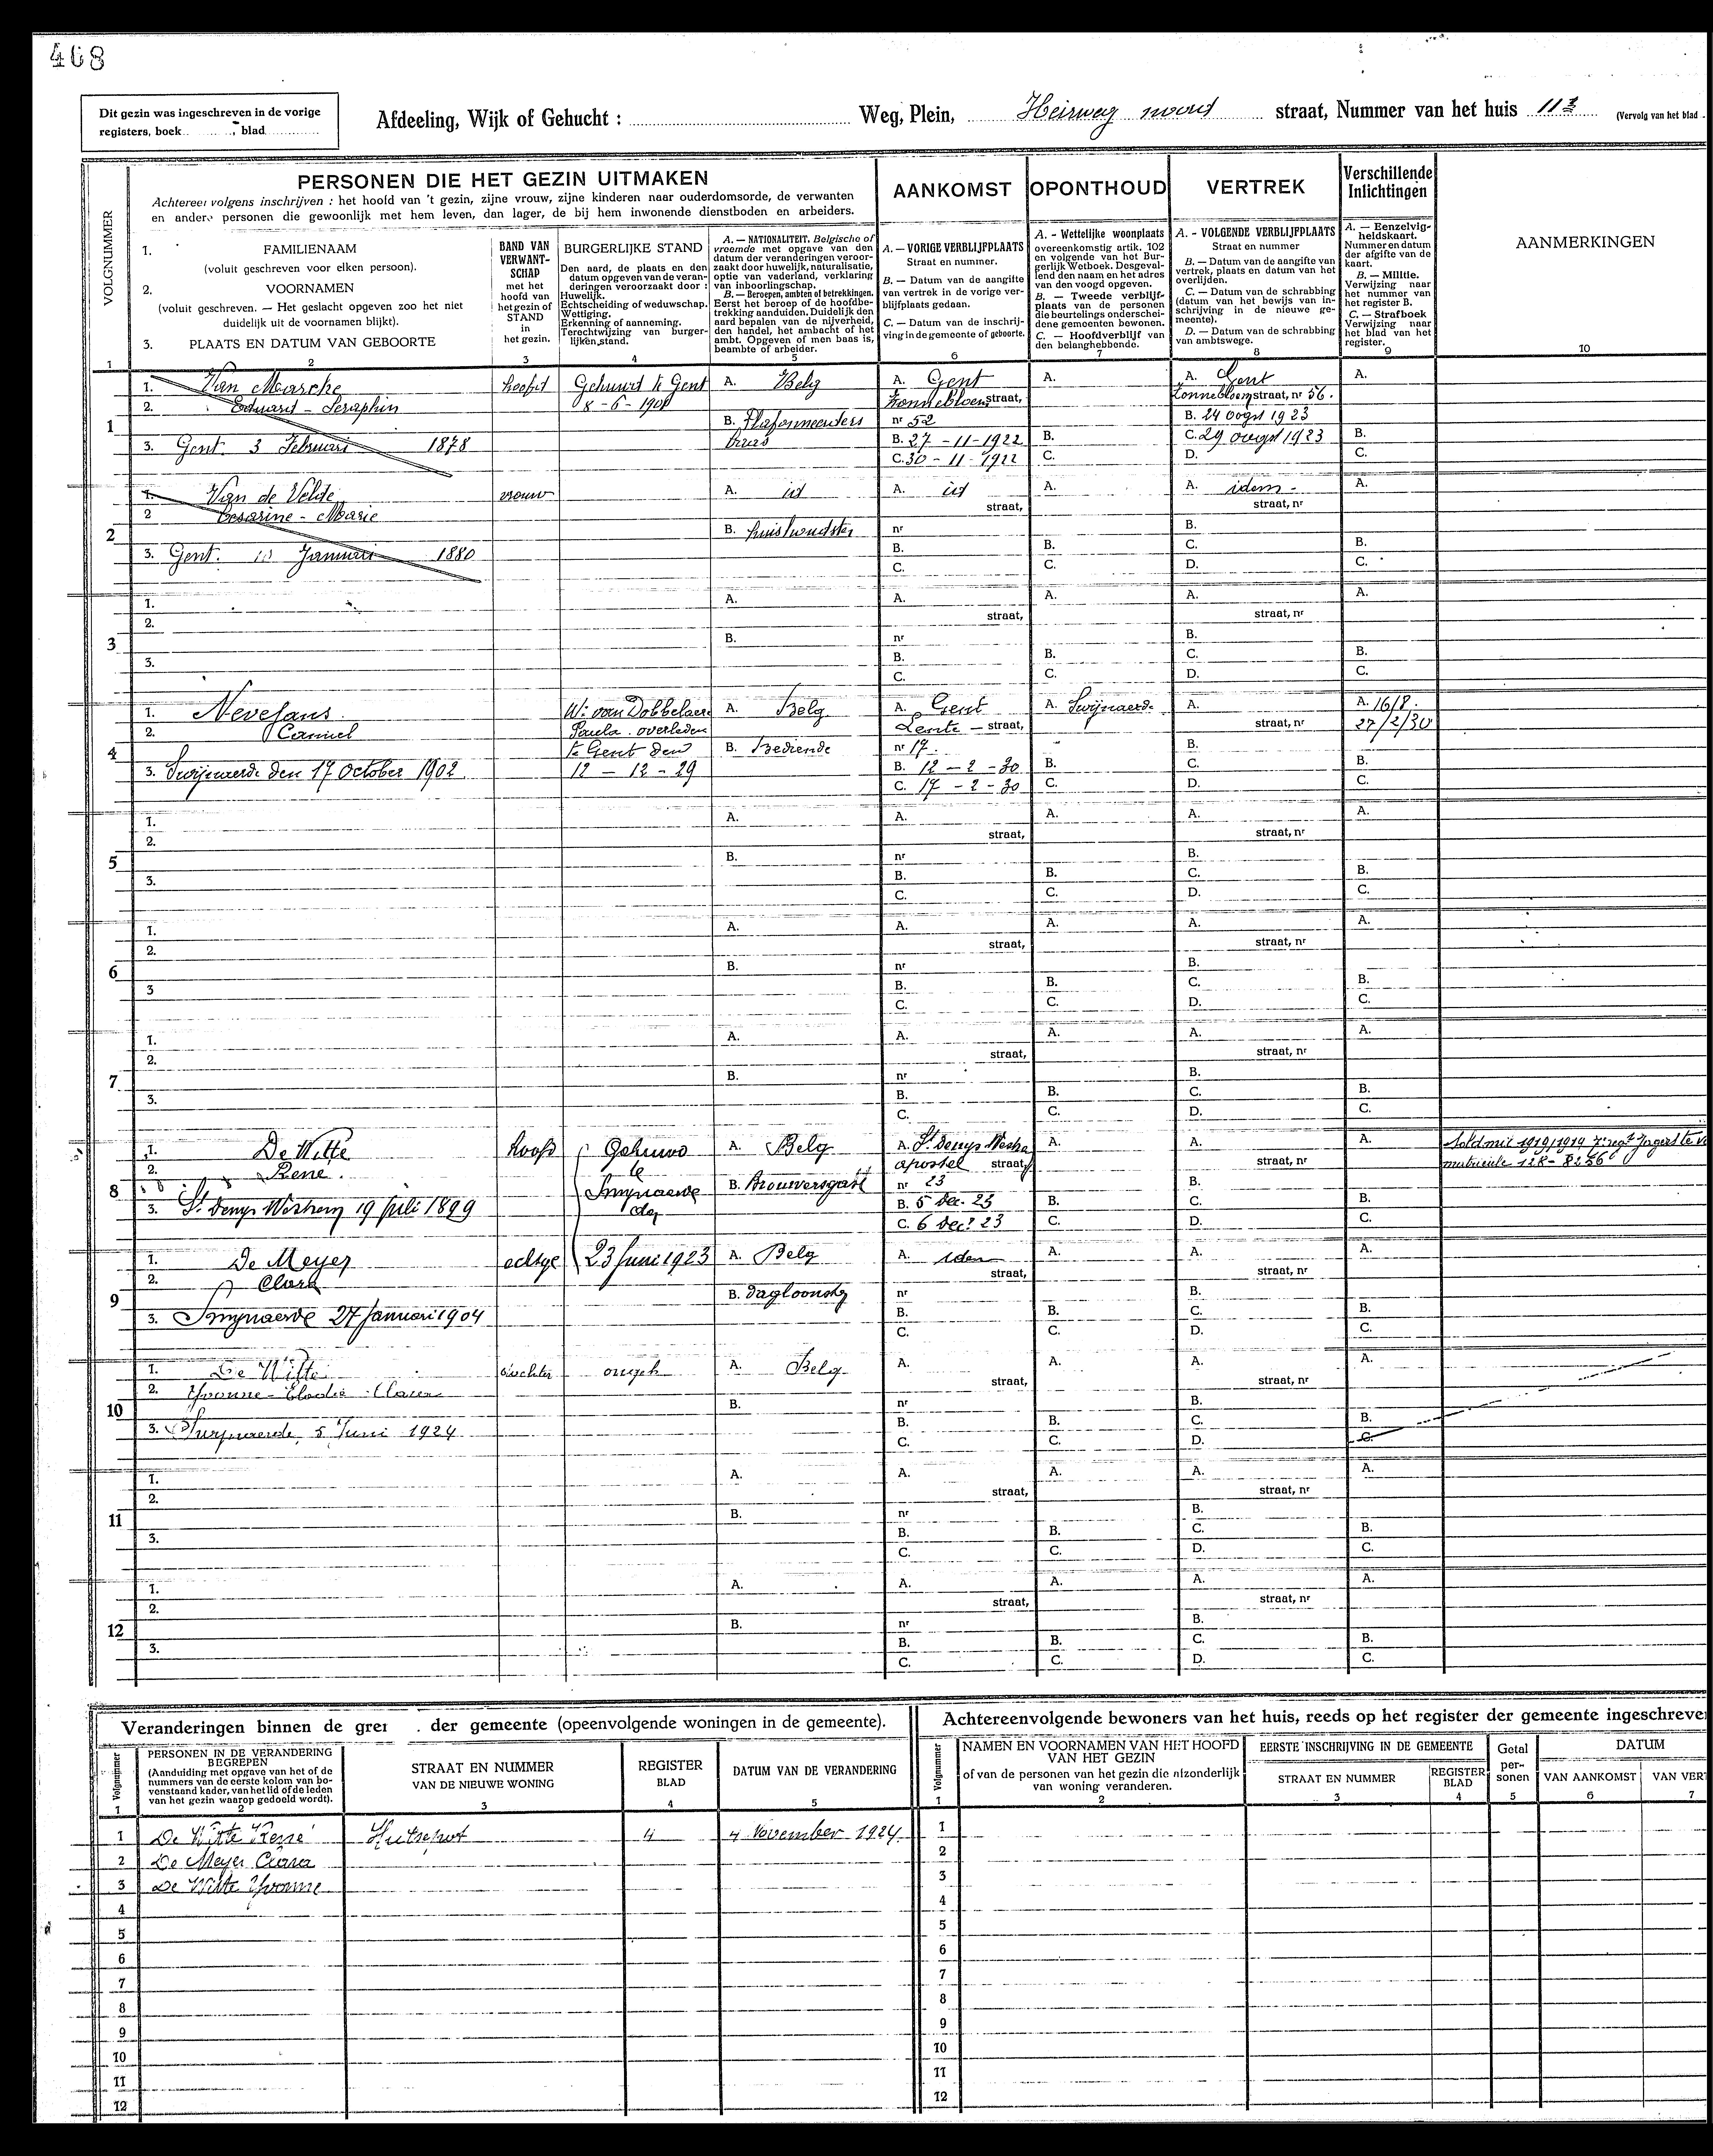 408
Dit gezin was ingeschreven in de vorige
registers, boek ........, blad ........
Afdeeling, Wijk of Gehucht : ........ Weg, Plein, Heirweg noord straat, Nummer van het huis 113 (Vervolg van het blad
PERSONEN DIE HET GEZIN UITMAKEN
Achtereenvolgens inschrijven : het hoofd van 't gezin, zijne vrouw, zijne kinderen naar ouderdomsorde, de verwanten
en andere personen die gewoonlijk met hem leven, dan lager, de bij hem inwonende dienstboden en arbeiders.
AANKOMST
OPONTHOUD
VERTREK
Verschillende
Inlichtingen
AANMERKINGEN
VOLGNUMMER
1. FAMILIENAAM
(voluit geschreven voor elken persoon).
2. VOORNAMEN
(voluit geschreven. — Het geslacht opgeven zoo het niet
duidelijk uit de voornamen blijkt).
3. PLAATS EN DATUM VAN GEBOORTE
BAND VAN
VERWANT-
SCHAP
met het
hoofd van
het gezin of
STAND
in
het gezin.
BURGERLIJKE STAND
Den aard, de plaats en den
datum opgeven van de veran-
deringen veroorzaakt door :
Huwelijk.
Echtscheiding of weduwschap.
Wettiging.
Erkenning of aanneming.
Terechtwijzing van burger-
lijken stand.
A. — NATIONALITEIT. Belgische of
vreemde met opgave van den
datum der veranderingen veroor-
zaakt door huwelijk, naturalisatie,
optie van vaderland, verklaring
van inboorlingschap.
B. — Beroepen, ambten of betrekkingen.
Eerst het beroep of de hoofdbe-
trekking aanduiden. Duidelijk den
aard bepalen van de nijverheid,
den handel, het ambacht of het
ambt. Opgeven of men baas is,
beambte of arbeider.
A. — VORIGE VERBLIJFPLAATS
Straat en nummer.
B. — Datum van de aangifte
van vertrek in de vorige ver-
blijfplaats gedaan.
C. — Datum van de inschrij-
ving in de gemeente of geboorte.
A. - Wettelijke woonplaats
overeenkomstig artik. 102
en volgende van het Bur-
gerlijk Wetboek. Desgeval-
lend den naam en het adres
van den voogd opgeven.
B. — Tweede verblijf-
plaats van de personen
die beurtelings onderschei-
dene gemeenten bewonen.
C. — Hoofdverblijf van
den belanghebbende.
A. - VOLGENDE VERBLIJFPLAATS
Straat en nummer
B. — Datum van de aangifte van
vertrek, plaats en datum van het
overlijden.
C. — Datum van de schrabbing
(datum van het bewijs van in-
schrijving in de nieuwe ge-
meente).
D. — Datum van de schrabbing
van ambtswege.
A. — Eenzelvig-
heidskaart.
Nummer en datum
der afgifte van de
kaart.
B. — Militie.
Verwijzing naar
het nummer van
het register B.
C. — Strafboek
Verwijzing naar
het blad van het
register.
1 2 3 4 5 6 7 8 9 10
1
1. Van Maarche hoofd Gehuwd te Gent A. Belg A. Gent A. A. Gent A.
2. Eduard - Seraphin 8 - 6 - 1901 Zonnebloem straat, Zonnebloem straat, nr 56.
B. Plafonneerders nr 52 B. 24 oogst 1923
3. Gent 3 Februari 1878 B. 27 - 11 - 1922 B. C. 29 oogst 1923 B.
C. 30 - 11 - 1922 C. D. C.
2
1. Van de Velde vrouw A. id A. id A. A. idem - A.
2 Cesarine - Marie straat, straat, nr
B. huishoudster nr B.
3. Gent. 10 Januari 1880 B. B. C. B.
C. C. D. C.
3
1. A. A. A. A. A.
2. straat, straat, nr
B. nr B.
3. B. B. C. B.
C. C. D. C.
4
1. Nevejans W. van Dobbelaere A. Belg A. Gent A. Swijnaerde A. A. 1618.
2. Camiel Paula overleden Lente - straat, straat, nr 27/2/30
te Gent den B. Bediende nr 17. B.
3. Swijnaerde den 17 October 1902 12 - 12 - 29 B. 12 - 2 - 30 B. C. B.
C. 17 - 2 - 30 C. D. C.
5
1. A. A. A. A. A.
2. straat, straat, nr
B. nr B.
3. B. B. C. B.
C. C. D. C.
6
1. A. A. A. A. A.
2. straat, straat, nr
B. nr B.
3 B. B. C. B.
C. C. D. C.
7
1. A. A. A. A. A.
2. straat, straat, nr
B. nr B.
3. B. B. C. B.
C. C. D. C.
8
1. De Witte hoofd Gehuwd A. Belg A. St Denys Westre A. A. A. 1919/1919
2. René. te apostel straat, straat, nr 128 - 8256
Swynaerde B. Brouwersgast nr 23 B.
3. St Denys Westrem 19 juli 1899 den B. 5 Dec. 23 B. C. B.
C. 6 Dec. 23 C. D. C.
9
1. De Meyer echtge 23 Juni 1923 A. Belg A. idem A. A. A.
2. Clara straat, straat, nr
B. dagloonstr nr B.
3. Swynaerde 27 Januari 1904 B. B. C. B.
C. C. D. C.
10
1. De Witte dochter ongeh A. Belg A. A. A. A.
2. Yvonne - Elodie - straat, straat, nr
B. nr B.
3. Swynaerde 5 Juni 1924 B. B. C. B.
C. C. D. C.
11
1. A. A. A. A. A.
2. straat, straat, nr
B. nr B.
3. B. B. C. B.
C. C. D. C.
12
1. A. A. A. A. A.
2. straat, straat, nr
B. nr B.
3. B. B. C. B.
C. C. D. C.
Veranderingen binnen de gre der gemeente (opeenvolgende woningen in de gemeente).
Volgnummer
PERSONEN IN DE VERANDERING
BEGREPEN
(Aanduiding met opgave van het of de
nummers van de eerste kolom van bo-
venstaand kader, van het lid of de leden
van het gezin waarop gedoeld wordt).
STRAAT EN NUMMER
VAN DE NIEUWE WONING
REGISTER
BLAD
DATUM VAN DE VERANDERING
1 2 3 4 5
1 De Witte René Hutsepot 4 4 November 1924.
2 De Meyer Clara
3 De Witte Yvonne
4
5
6
7
8
9
10
11
12
Achtereenvolgende bewoners van het huis, reeds op het register der gemeente ingeschreve
Volgnummer
NAMEN EN VOORNAMEN VAN HET HOOFD
VAN HET GEZIN
of van de personen van het gezin die afzonderlijk
van woning veranderen.
EERSTE INSCHRIJVING IN DE GEMEENTE
STRAAT EN NUMMER
REGISTER
BLAD
Getal
per-
sonen
DATUM
VAN AANKOMST
VAN VERT
1 2 3 4 5 6 7
1
2
3
4
5
6
7
8
9
10
11
12